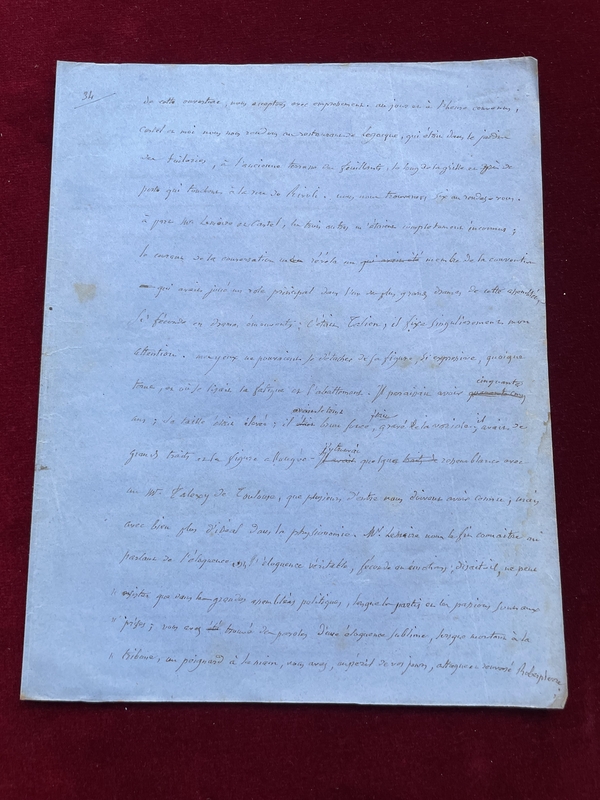 34
de cette ouverture, nous acceptons avec empressement. au jour et à l'heure convenus,
Castel et moi nous nous rendons au restaurateur Legacque, qui était dans le jardin
des Tuileries, à l'ancienne terrasse des feuillants, le long de la grille et près de
porte qui touchent à la rue de Rivoli. nous nous trouvames six au rendez-vous.
à part MM Lemaire et Castel, les trois autres m'étaient complètement inconnus;
la causerie de la conversation me révéla un qui avait été membre de la convention
qui avait joué un rôle principal dans l'un des plus grands drames de cette assemblée,
si féconde en drames émouvants; c'était Talien; il fixa singulièrement mon
attention. mes yeux ne pouvaient se détacher de sa figure si expressive, quoique
terne, et où se lisait la fatigue et l'abattement. Il paraissait avoir cinquante
ans; sa taille était élevée; il avait le teint brun foncé, grave de la voix, il avait de
grands traits et la figure allongée. J'y trouvai quelque ressemblance avec
un Mr. de Toulouse, que plusieurs d'entre vous doivent avoir connu; mais
avec bien plus d'idéal dans la physionomie. Mr. Lemaire nous le fit connaître en
parlant de l'éloquence. « l'éloquence véritable, féconde en émotions, disait-il, ne peut
" exister que dans les grandes assemblées politiques, lorsque les partis et les passions sont aux
" prises; vous avez trouvé des paroles d'une éloquence sublime, lorsque montant à la
" tribune, un poignard à la main, vous avez, au péril de vos jours, attaqué et renversé Robespierre